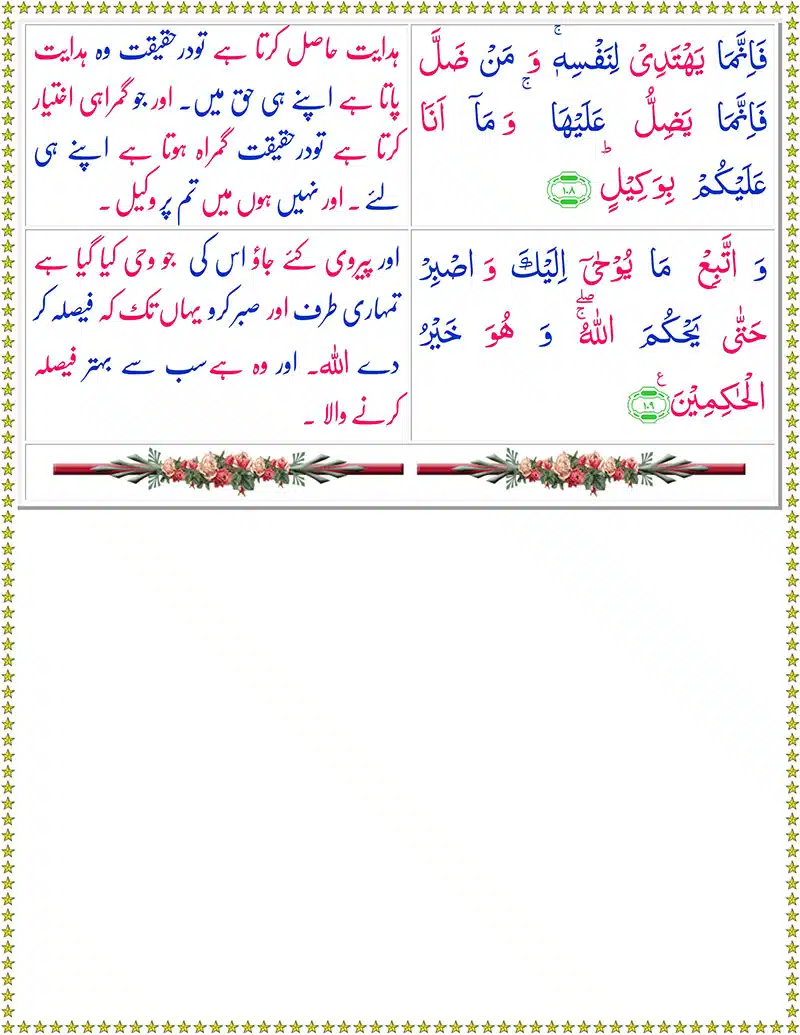 فَاِنَّمَا يَهْتَدِىْ لِنَفْسِهٖ ۚ وَ مَنْ ضَلَّ
فَاِنَّمَا يَضِلُّ عَلَيْهَا ۚ وَ مَاۤ اَنَا
عَلَيْكُمْ بِوَكِيْلٍ ؕ ۱۰۸
ہدایت حاصل کرتا ہے تودرحقیقت وہ ہدایت
پاتا ہے اپنے ہی حق میں۔ اور جو گمراہی اختیار
کرتا ہے تودرحقیقت گمراہ ہوتا ہے اپنے ہی
لئے ۔ اور نہیں ہوں میں تم پر وکیل ۔
وَ اتَّبِعْ مَا يُوْحٰىۤ اِلَيْكَ وَ اصْبِرْ
حَتّٰى يَحْكُمَ اللّٰهُ ۖۚ وَ هُوَ خَيْرُ
الْحٰكِمِيْنَ ع ۱۰۹
اور پیروی کئے جاؤ اس کی جو وحی کیا گیا ہے
تمہاری طرف اور صبر کرو یہاں تک کہ فیصلہ کر
دے اللہ۔ اور وہ ہے سب سے بہتر فیصلہ
کرنے والا ۔